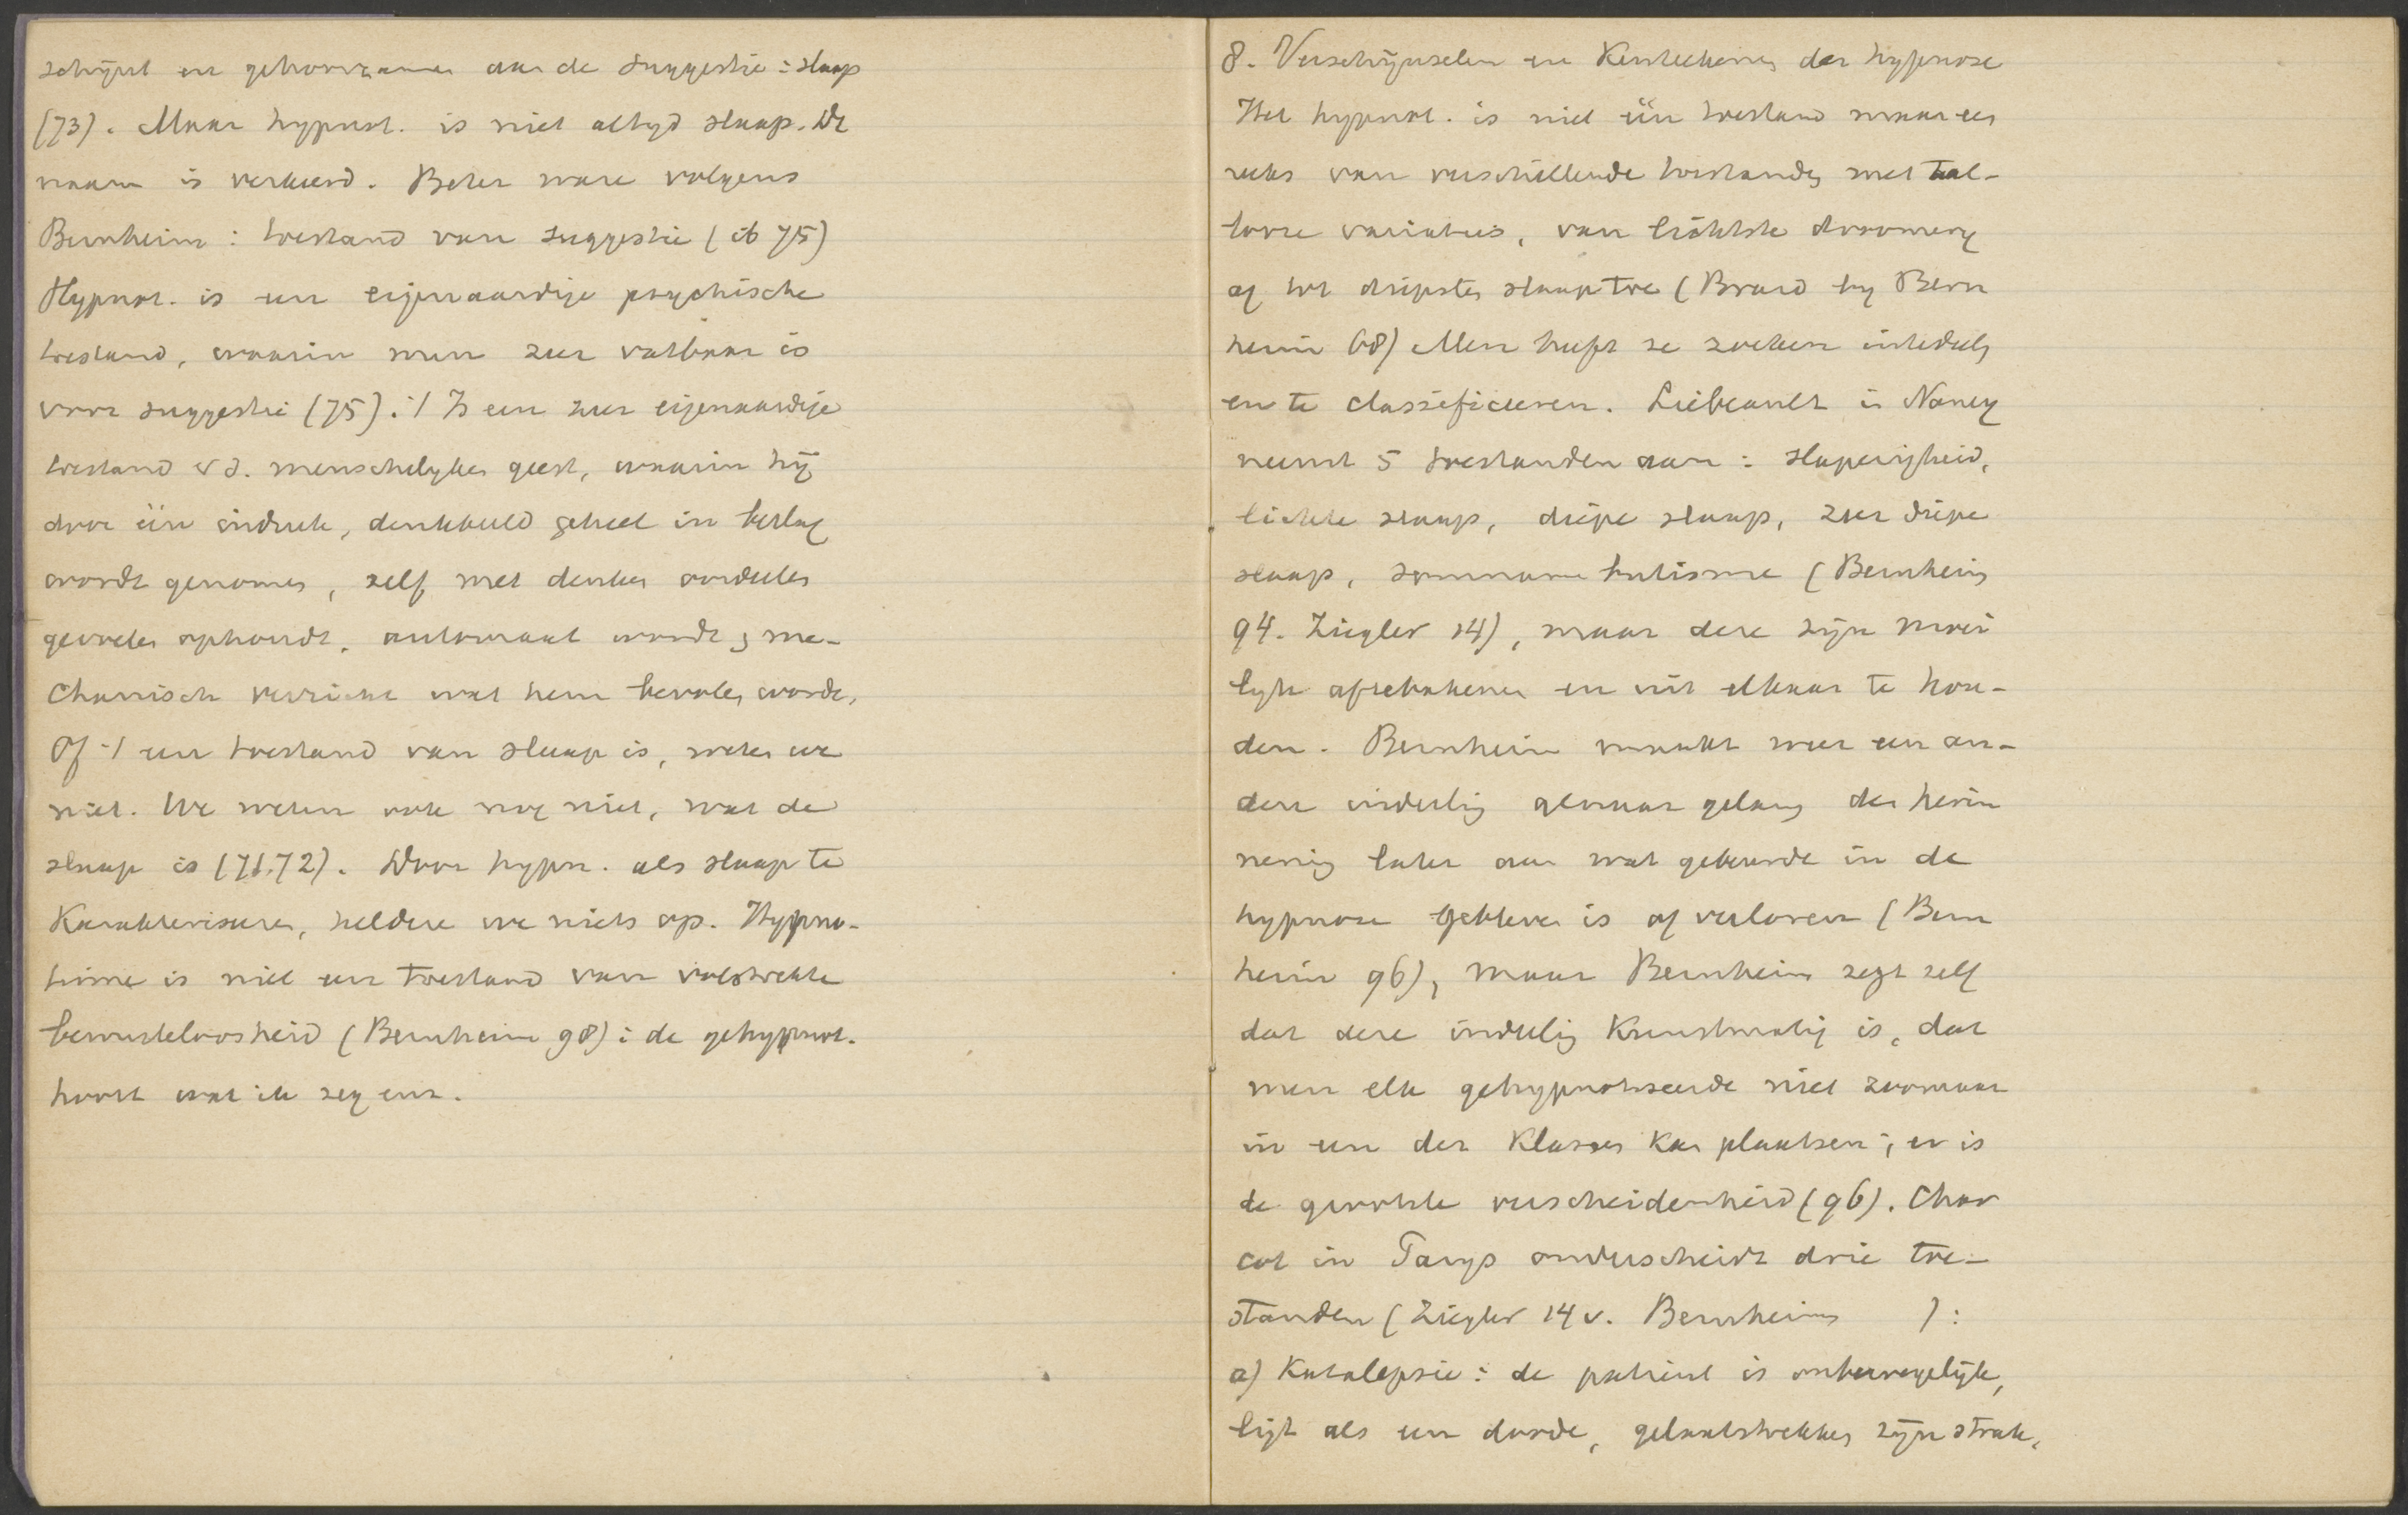 schijnt en gehoorzamen aan de suggestie: slaap
(73). Maar hypnot. is niet altyd slaap. De
naam is verkeerd. Beter ware volgens
Bernheim: toestand van suggestie (ib 75)
Hypnot. is een eigenaardige psychische
toestand, waarin men zeer vatbaar is
voor suggestie (75). 't Is een zeer eigenaardige
toestand v d. menschelyken geest, waarin hij
door één indruk, denkbeeld geheel in beslag
wordt genomen, zelf met denken oordeelen
gevoelen ophoudt, automaat wordt, me-
chanisch verricht wat hem bevolen wordt,
Of 't een toestand van slaap is, weten we
niet. We weten ook nog niet, wat de
slaap is (71.72). Door hypn. als slaap te
Karakteriseren, heldere we niets op. Hypno-
tisme is niet een toestand van volstrekte
bewusteloosheid (Bernheim 98): de gehypnot.
hoort wat ik zeg enz.
8. Verschijnselen en Kenteekenen der hypnose
Het hypnot. is niet één toestand maar een
reeks van verschillende toestanden met tal-
looze variaties, van lichtste droomery
af tot diepsten slaap toe (Braid by Bern
heim 68) Men heeft ze zoeken intedeelen
en te classificeeren. Liébeault in Nancy
neemt 5 toestanden aan: slaperigheid,
lichte slaap, diepe slaap, zeer diepe
slaap, somnambulisme (Bernheim
94. Ziegler 14), maar deze zijn moei
lyk aftebakenen en uit elkaar te hou-
den. Bernheim maakt weer een an-
dere indeeling al naar gelang de herin
nering later aan wat gebeurde in de
hypnose gebleven is of verloren (Bern
heim 96), maar Bernheim zegt zelf
dat deze indeeling Kunstmatig is, dat
men elk gehypnotiseerde niet zoomaar
in een der Klassen kan plaatsen; er is
de grootste verscheidenheid (96). Char
cot in Parys onderscheidt drie toe-
standen (Ziegler 14 v. Bernheim ):
a) Katalepsie: de patient is onbewegelijk,
ligt als een doode, gelaatstrekken zijn strak,